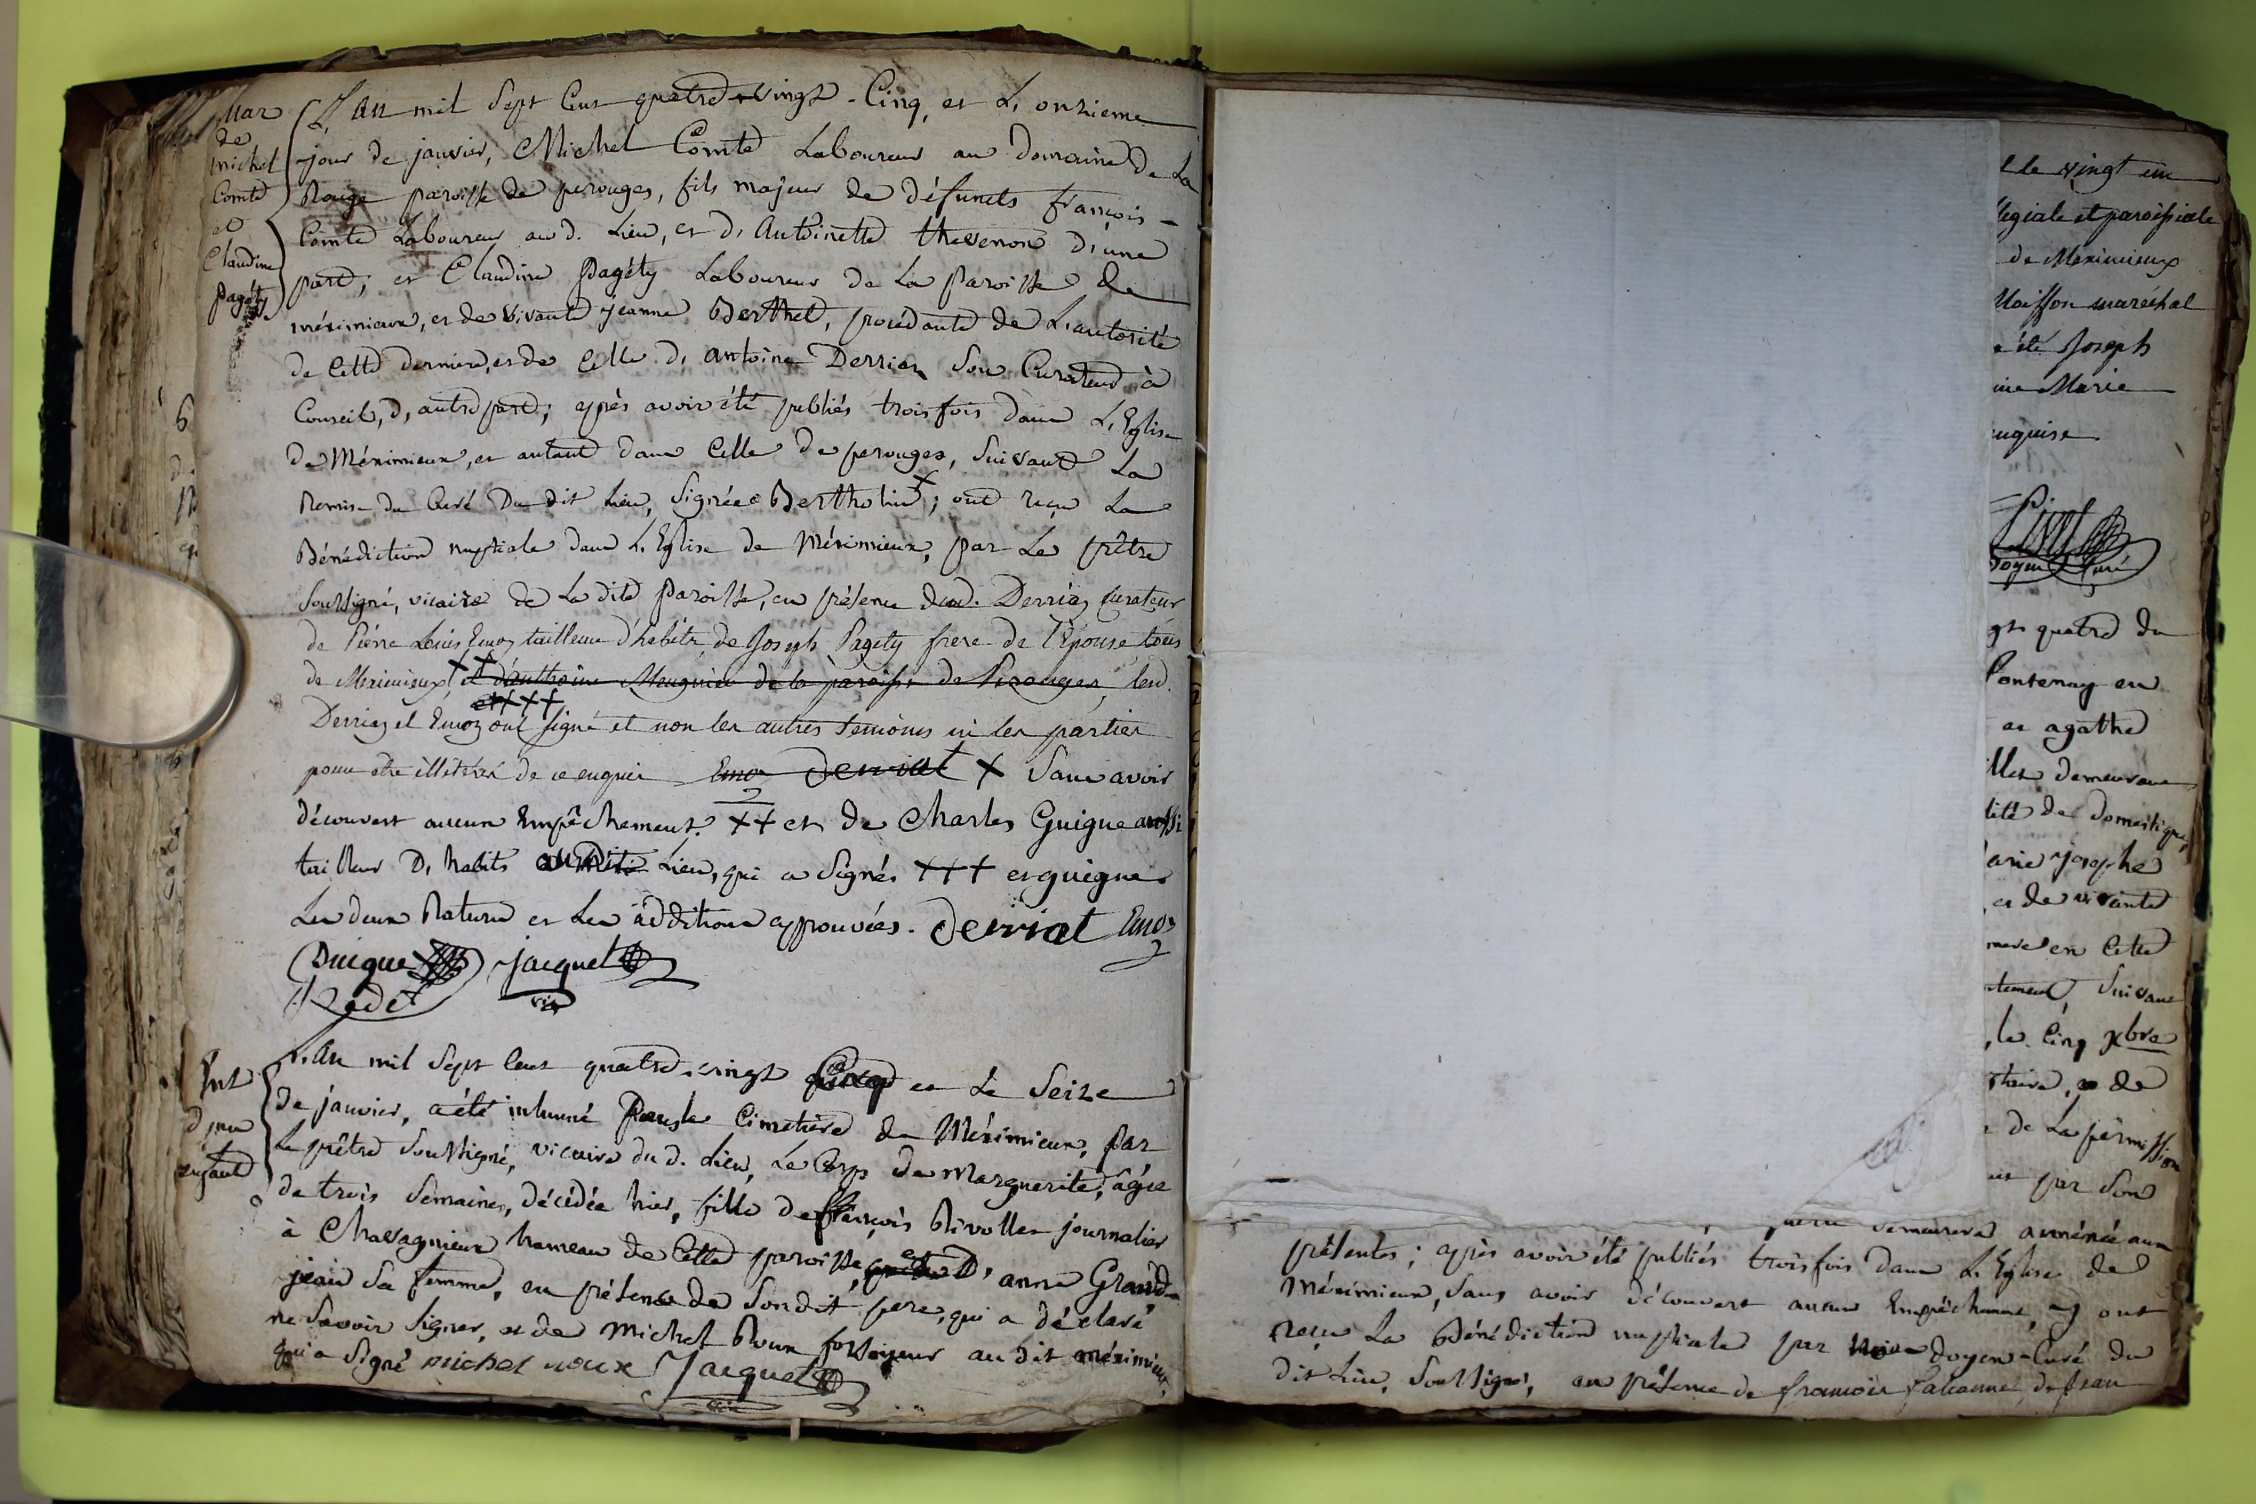 Mar
de
michel
Comte
et
Claudine
pagéty
L'an mil sept cent quatre-vingt-Cinq, et L'onzieme
jour de janvier, Michel Comte Laboureur au domaine de La
Rouge paroisse de perouges, fils majeur de défunts françois
Comte Laboureur aud. Lieu, et d'Antoinette thevenon d'une
part; et Claudine pagéty Laboureur de La paroisse de
méximieux, et de vivante jeanne Berthet, procédante de L'autorité
de Cette derniere, et de Celle d'antoine Derriaz son Curateur à
Conseil, d'autre part; après avoir été publiés trois fois dans L'Eglise
de Méximieux, et autant dans Celle de perouges, suivant La
Remise du Curé Du dit Lieu, signée Bertholin X; ont reçu La
Bénédiction nuptiale dans L'Eglise de Méximieux, par Le prêtre
soussigné, vicaire de La dite paroisse, en présence dud. Derriaz curateur
de Pierre Louis Emoz tailleur d'habits, de Joseph Pagety frere de l'Epouse, tous
de Meximieux, XX et d'anthoine Meugnier de la paroisse de Perouges, led.
Derriaz et Emoz et XXX ont signé et non les autres temoins ni les parties
pour etre illitérés de ce enquis Emoz Derriat X sans avoir
découvert aucun Empêchement. XX et de Charles Guigue aussi
tailleur D'habits audit Lieu, qui a signés XXX et guigue
Les deux Rature et Les additions approuvées. Derriat Emoz
Guigue jacquet
vic
Ent
d'un
enfant
L'an mil sept cent quatre-vingt Cinq et Le seize
de janvier, a été inhumé dans le Cimetiere de Méximieux, par
Le prêtre soussigné, vicaire du d. Lieu, Le Corps de Marguerite, âgée
de trois semaines, décédée hier, fille de françois Rivolles journalier
à Chavagnieux hameau de Cette paroisse, et d'anne Grand-
jean sa femme, en présence de son dit pere, qui a déclaré
ne savoir signer, et de Michel Roux fossoyeur au dit méximieux,
qui a signé michel roux Jacquet
vic
le vingt un
legiale et paroissiale
de Meximieux
maréchal
été Joseph
Marie
enquise
Doyen Curé
quatre du
Fontenay en
et agathe
Demeurant
lité de Domestique
arie josephe
et de vivante
en Cette
suivant
le Cinq xbre
et de
de La permission
par son
amenée aux
présentes; après avoir été publiés trois fois dans L'Eglise de
Méximieux, sans avoir découvert aucun Empêchement, ont
reçu La Bénédiction nuptiale par Nous doyen-Curé du
dit Lieu, soussigné, en présence de françois de jean